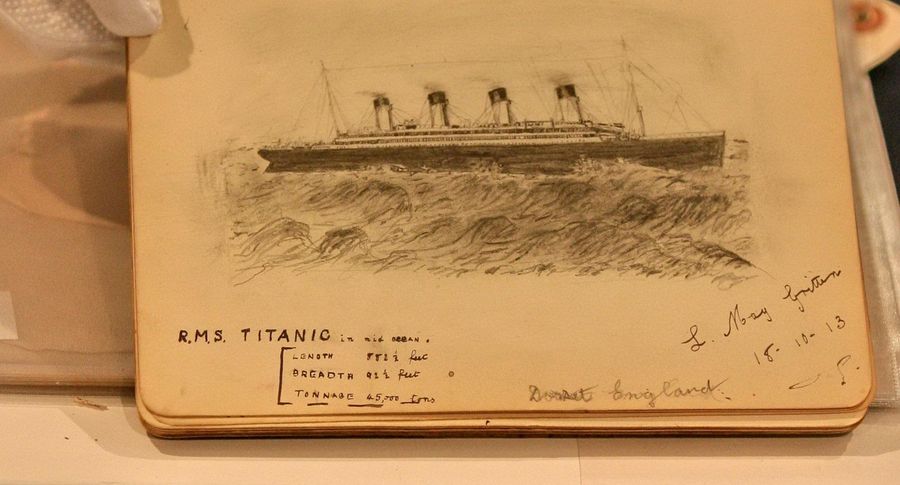 R.M.S. TITANIC in mid ocean.
LENGTH 882½ feet
BREADTH 92½ feet
TONNAGE 45,000 tons
L. May Gritten
18-10-13
Dorset England.